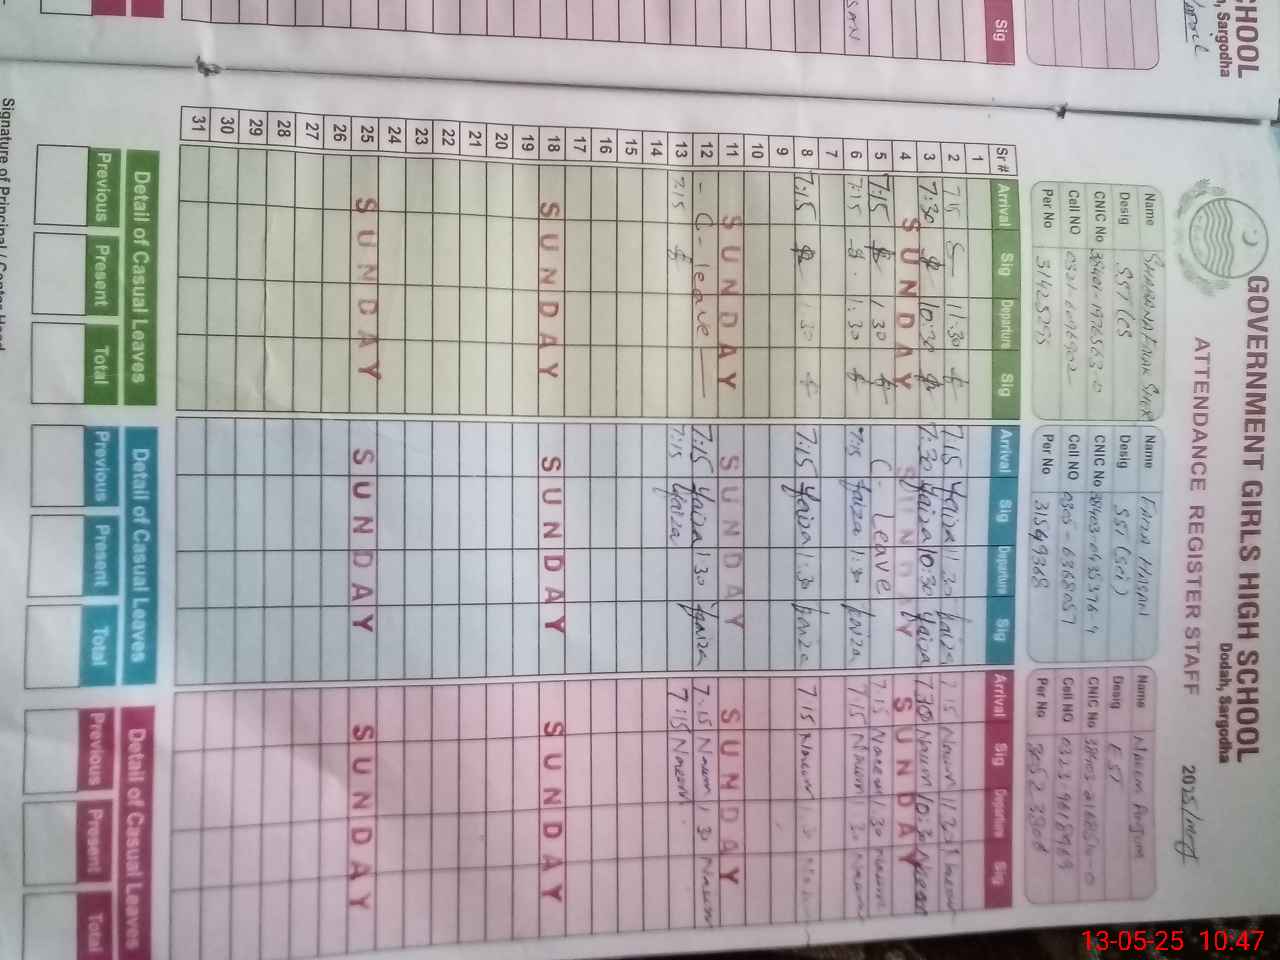 GOVERNMENT GIRLS HIGH SCHOOL
Dodah, Sargodha
ATTENDANCE REGISTER STAFF 2025/May
Name
Desig SST (CS
CNIC No
Cell NO
Per No 31425295
Name
Desig SST (Sci)
CNIC No
Cell NO
Per No 31549368
Name Naeem Anjum
Desig EST
CNIC No
Cell NO
Per No
Sr# Arrival Sig Departure Sig Arrival Sig Departure Sig Arrival Sig Departure Sig
1
2 7:15 11:30 7:15 Faiza 11:30 Faiza 7:15 Naeem 11:30 Naeem
3 7:30 10:30 7:30 Faiza 10:30 Faiza 7:30 Naeem 10:30 Naeem
4 SUNDAY SUNDAY SUNDAY
5 7:15 1:30 C-Leave 7:15 Naeem 1:30 Naeem
6 7:15 1:30 7:15 Faiza 1:30 Faiza 7:15 Naeem 1:30 Naeem
7
8 7:15 1:30 7:15 Faiza 1:30 Faiza 7:15 Naeem 1:30
9
10
11 SUNDAY SUNDAY SUNDAY
12 - C-leave 7:15 Faiza 1:30 Faiza 7:15 Naeem 1:30 Naeem
13 7:15 7:15 Faiza 7:15 Naeem
14
15
16
17
18 SUNDAY SUNDAY SUNDAY
19
20
21
22
23
24
25 SUNDAY SUNDAY SUNDAY
26
27
28
29
30
31
Detail of Casual Leaves Detail of Casual Leaves Detail of Casual Leaves
Previous Present Total Previous Present Total Previous Present Total
Signature of Principal / Center Head
CHOOL
, Sargodha
Sig
13-05-25 10:47